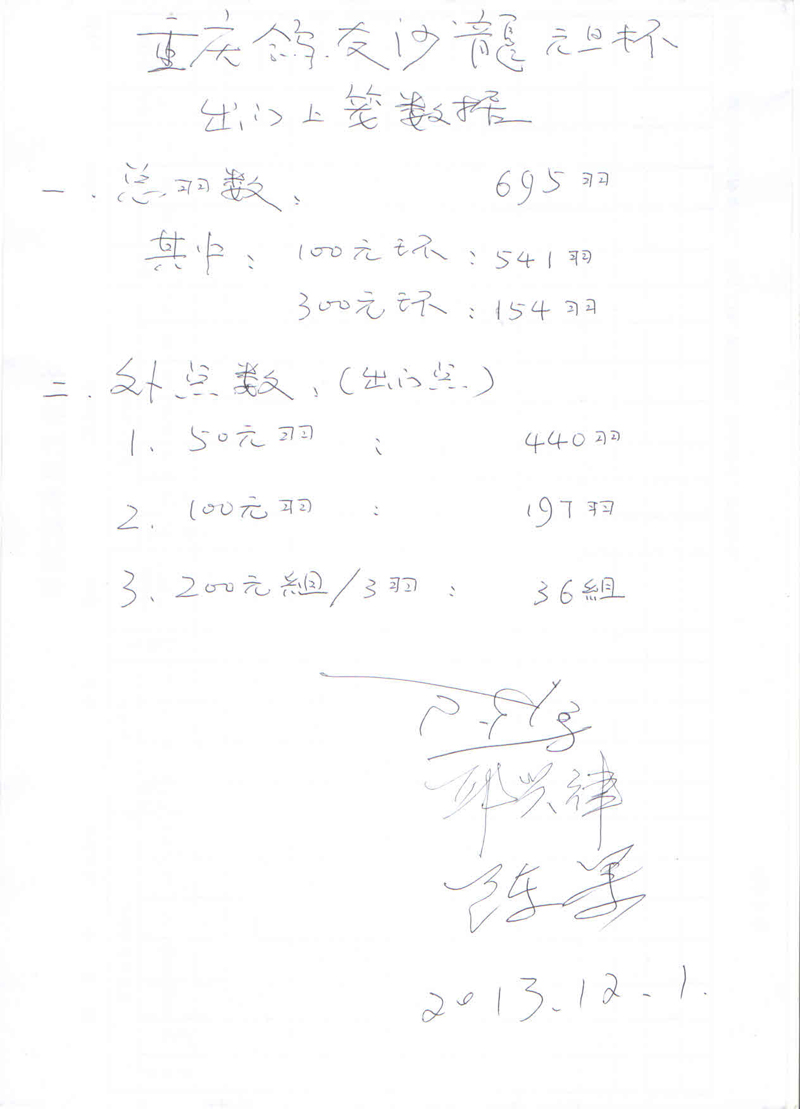 重庆鸽友沙龍元旦杯
出门上笼数据
一.总羽数: 695羽
其中: 100元环: 541羽
300元环: 154羽
二.外点数:(出门点)
1. 50元羽: 440羽
2. 100元羽: 197羽
3. 200元組/3羽: 36組
2013.12.1.